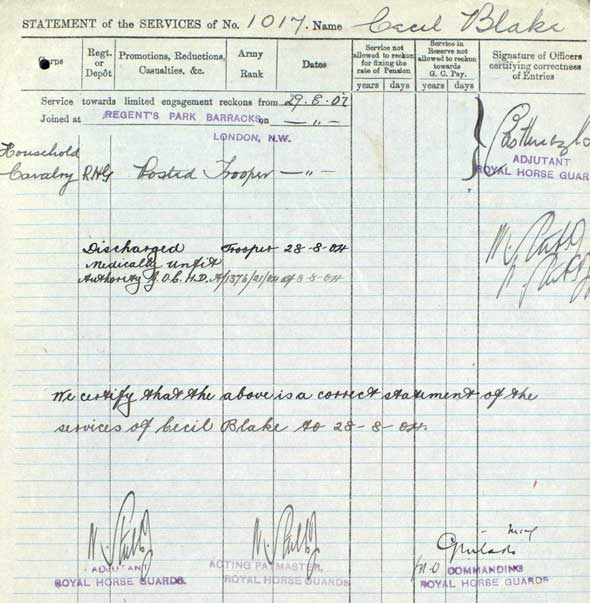 STATEMENT of the SERVICES of No. 1017. Name Cecil Blake
Corps
Regt. or Depôt
Promotions, Reductions, Casualties, &c.
Army Rank
Dates
Service not allowed to reckon for fixing the rate of Pension
years days
Service in Reserve not allowed to reckon towards G. C. Pay.
years days
Signature of Officers certifying correctness of Entries
Service towards limited engagement reckons from 29.8.02
Joined at REGENT'S PARK BARRACKS on — " —
LONDON, N.W.
ADJUTANT
ROYAL HORSE GUARD
Household
Cavalry R.H.G Posted Trooper — " —
Discharged Trooper 28-8-04
Medically unfit
Authority G.O.C. H.D. 8-8-04
We certify that the above is a correct statement of the
services of Cecil Blake to 28-8-04.
ADJUTANT
ROYAL HORSE GUARDS.
ACTING PAYMASTER,
ROYAL HORSE GUARDS.
COMMANDING
ROYAL HORSE GUARDS